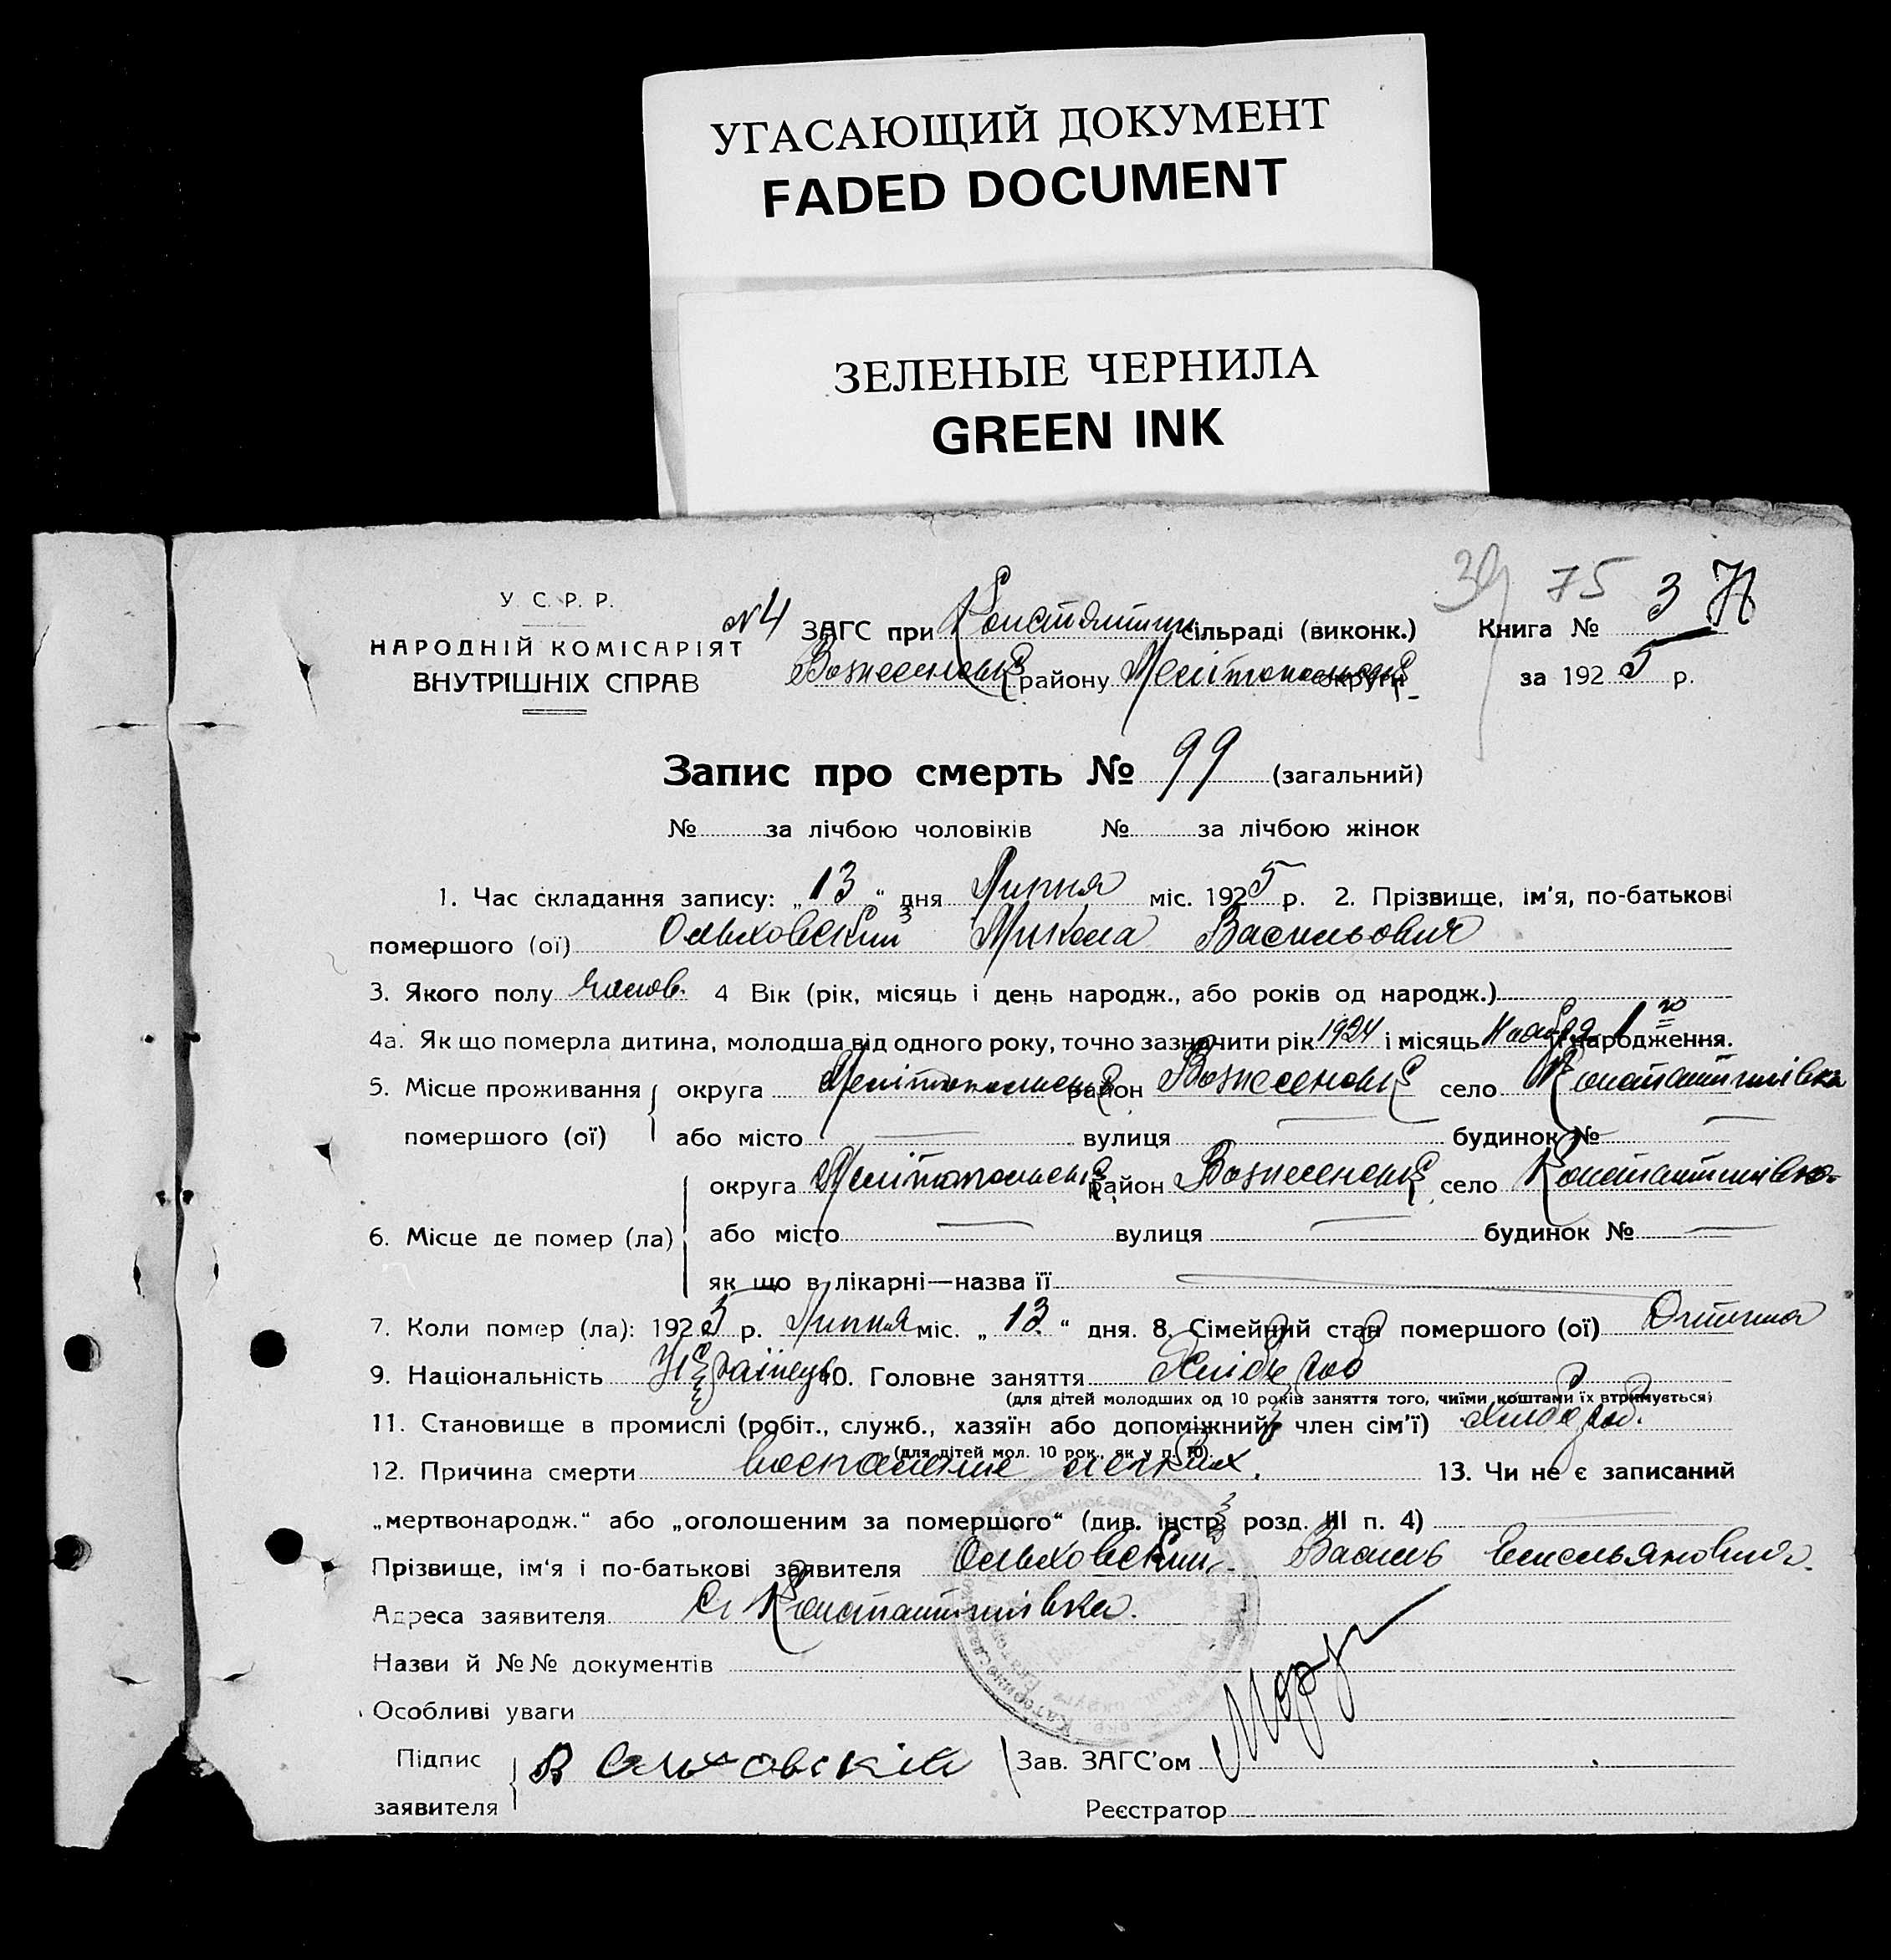 УГАСАЮЩИЙ ДОКУМЕНТ
FADED DOCUMENT
ЗЕЛЕНЫЕ ЧЕРНИЛА
GREEN INK
39 75 3
У С. Р. Р.
НАРОДНІЙ КОМІСАРІЯТ
ВНУТРІШНІХ СПРАВ
№4 ЗАГС при Константин сільраді (виконк.) Книга №
Вознесенськ району Мелітопольськ округи за 1925 р.
Запис про смерть № 99 (загальний)
№ за лічбою чоловіків № за лічбою жінок
1. Час складання запису: „13“ дня Липня міс. 1925 р. 2. Прізвище, ім'я, по-батькові
помершого (ої) Ольховский Микола Васильович
3. Якого полу чолов. 4 Вік (рік, місяць і день народж., або років од народж.)
4а. Як що померла дитина, молодша від одного року, точно зазначити рік 1924 і місяць Ноября 1го народження.
5. Місце проживання округа Мелітопольськ район Вознесенськ село Константинівка
помершого (ої) або місто — вулиця — будинок № —
округа Мелітопольськ район Вознесенськ село Константинівка
6. Місце де помер (ла) або місто — вулиця — будинок № —
як що в лікарні—назва її —
7. Коли помер (ла): 1925 р. Липня міс. „13“ дня. 8. Сімейний стан помершого (ої) Дитина
9. Національність Українець 10. Головне заняття Хлібороб
(для дітей молодших од 10 років заняття того, чиїми коштами їх втримується)
11. Становище в промислі (робіт., служб., хазяїн або допоміжний член сім'ї) хлібороб.
(для дітей мол. 10 рок., як у п. 10)
12. Причина смерти воспаление легких. 13. Чи не є записаний
„мертвонародж.“ або „оголошеним за помершого“ (див. інстр. розд. III п. 4) —
Прізвище, ім'я і по-батькові заявителя Ольховский Василь Емельянович.
Адреса заявителя с. Константинівка.
Назви й №№ документів
Особливі уваги
Підпис
заявителя В Ольховский Зав. ЗАГС'ом
Реєстратор